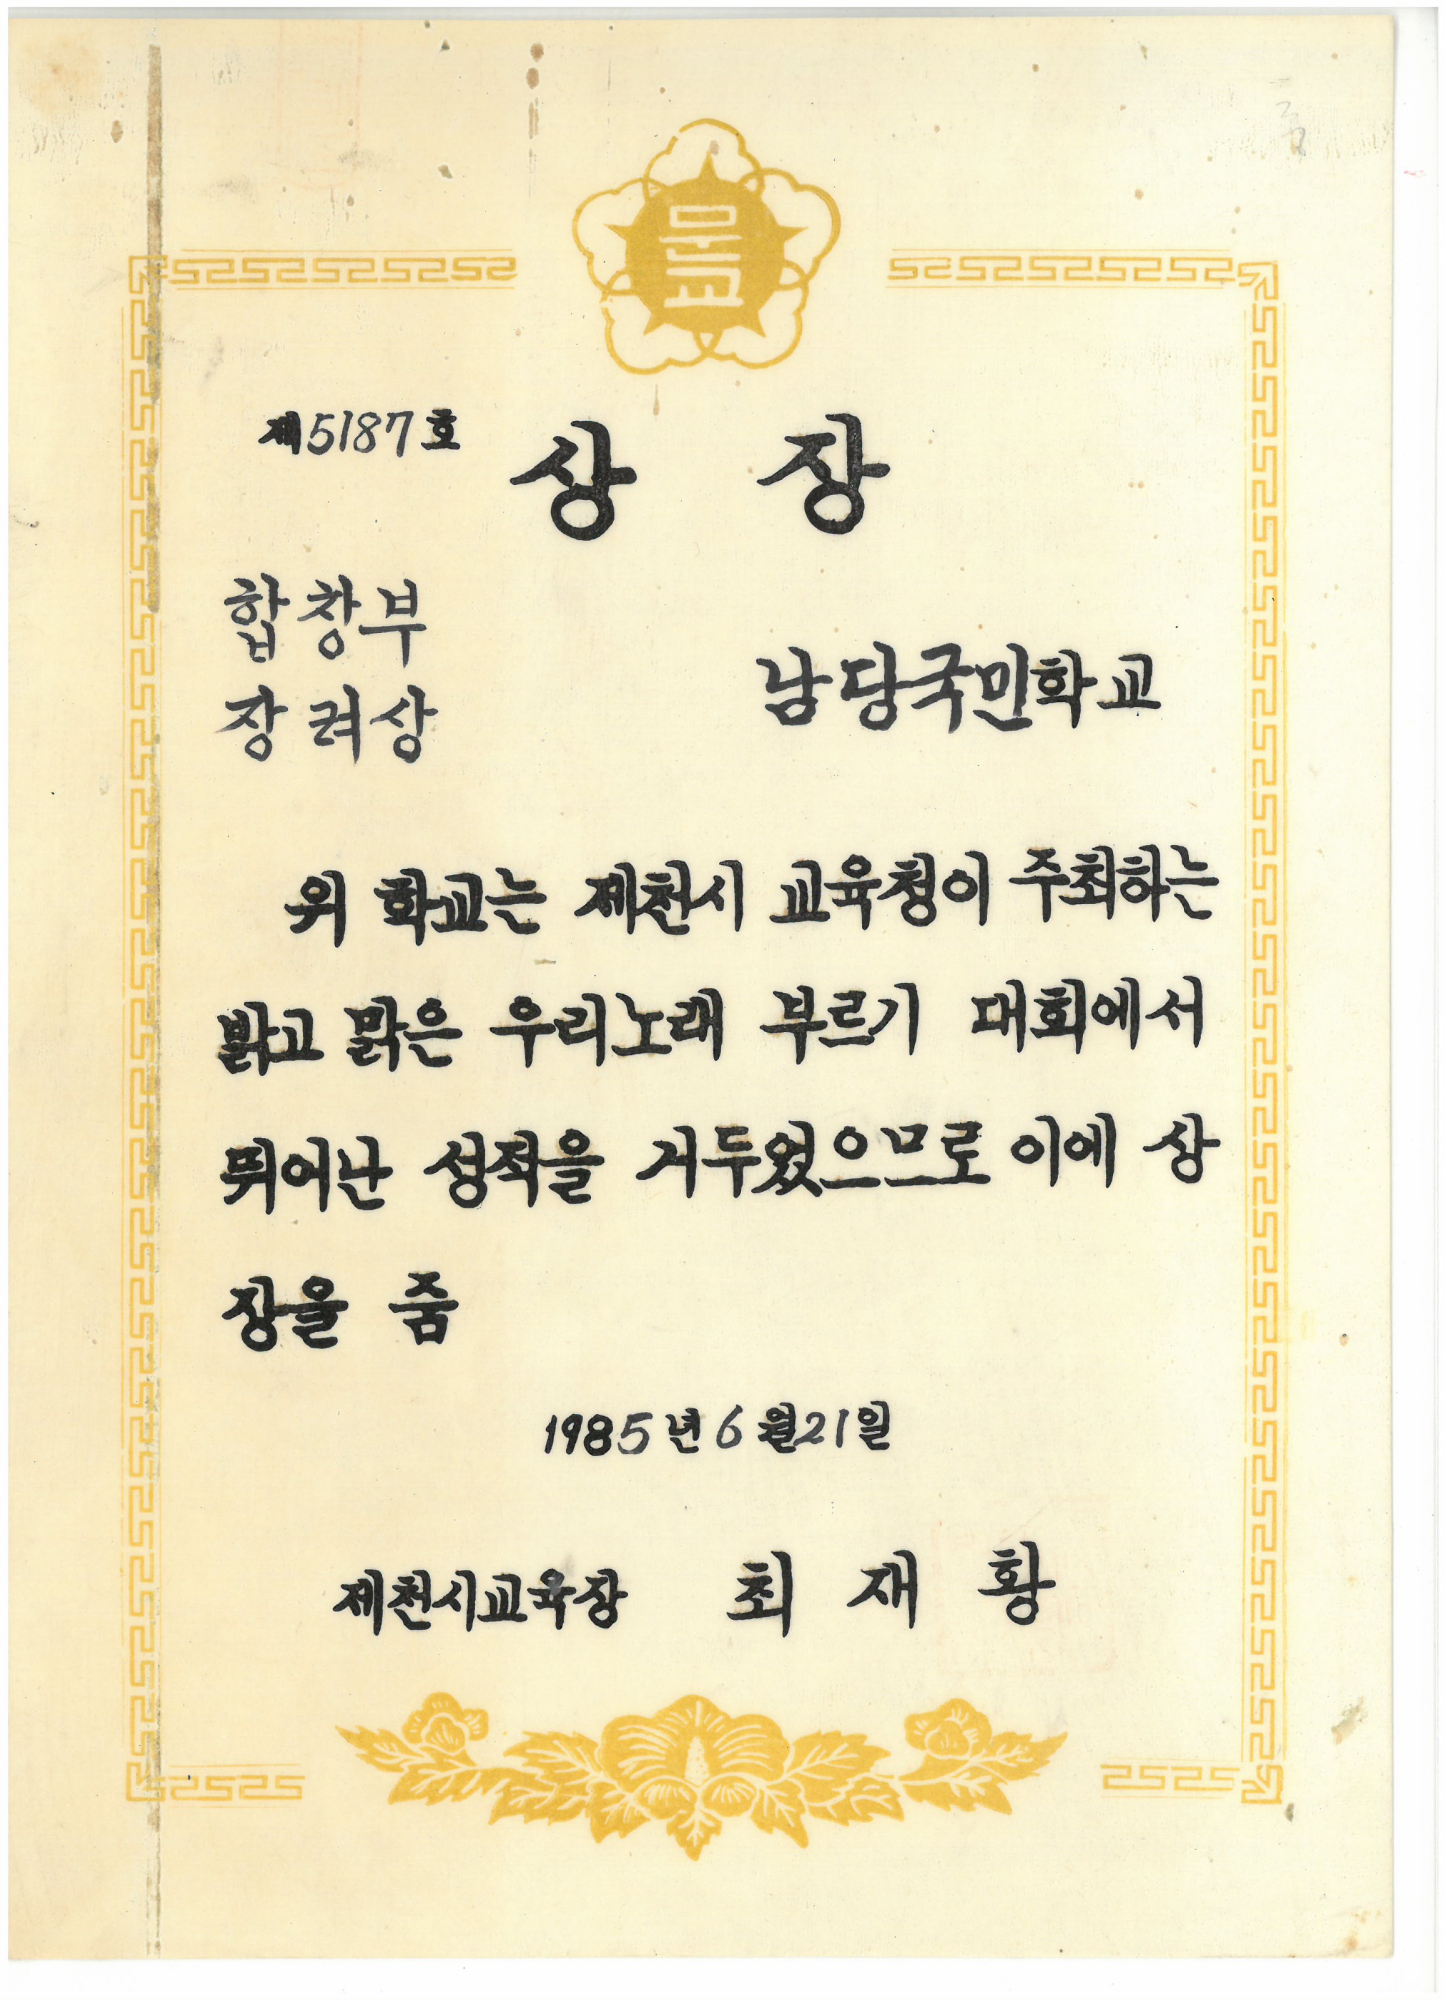 문교
제5187호
상 장
합창부
장려상
남당국민학교
위 학교는 제천시 교육청이 주최하는
밝고 맑은 우리노래 부르기 대회에서
뛰어난 성적을 거두었으므로 이에 상
장을 줌
1985년 6월 21일
제천시교육장 최재황